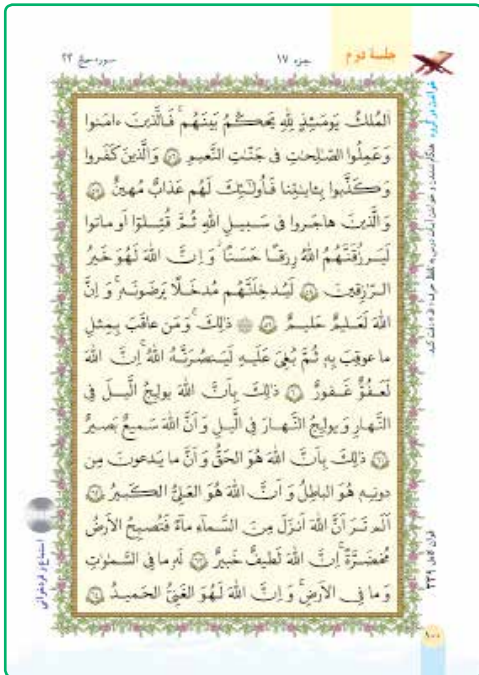 جلسهٔ دوم
جزء ۱۷
سوره حج ۲۲
اَلمُلكُ يَومَئِذٍ لِلّٰهِ يَحكُمُ بَينَهُم ۚ فَالَّذينَ ءامَنوا
وَ عَمِلُوا الصّالِحٰتِ فى جَنّٰتِ النَّعيمِ ﴿٥٦﴾ وَ الَّذينَ كَفَروا
وَ كَذَّبوا بِـٔايٰتِنا فَاُولٰـئِكَ لَهُم عَذابٌ مُهينٌ ﴿٥٧﴾
وَ الَّذينَ هاجَروا فى سَبيلِ اللّٰهِ ثُمَّ قُتِلـوا اَو ماتوا
لَيَـرزُقَنَّهُـمُ اللّٰهُ رِزقًـا حَسَنًا ۚ وَ اِنَّ اللّٰهَ لَهُوَ خَيرُ
الـرّٰزِقينَ ﴿٥٨﴾ لَيُدخِلَنَّهُم مُدخَلًا يَرضَونَهٗ ۚ وَ اِنَّ
اللّٰهَ لَعَليمٌ حَليمٌ ﴿٥٩﴾ ۞ ذٰلِكَ ۚ وَ مَن عاقَبَ بِمِثلِ
ما عوقِبَ بِهٖ ثُمَّ بُغِىَ عَلَيهِ لَيَنصُرَنَّهُ اللّٰهُ ۚ اِنَّ اللّٰهَ
لَعَفُوٌّ غَفورٌ ﴿٦٠﴾ ذٰلِكَ بِاَنَّ اللّٰهَ يولِجُ الَّيلَ فِى
النَّهارِ وَ يولِجُ النَّهارَ فِى الَّيلِ وَ اَنَّ اللّٰهَ سَميعٌ بَصيرٌ
﴿٦١﴾ ذٰلِكَ بِاَنَّ اللّٰهَ هُوَ الحَقُّ وَ اَنَّ ما يَدعونَ مِن
دونِهٖ هُوَ الباطِلُ وَ اَنَّ اللّٰهَ هُوَ العَلِىُّ الكَبيرُ ﴿٦٢﴾
اَلَم تَـرَ اَنَّ اللّٰهَ اَنزَلَ مِنَ السَّماءِ ماءً فَتُصبِحُ الاَرضُ
مُخضَرَّةً ۗ اِنَّ اللّٰهَ لَطيفٌ خَبيرٌ ﴿٦٣﴾ لَهٗ ما فِى السَّمٰوٰتِ
وَ ما فِى الاَرضِ ۗ وَ اِنَّ اللّٰهَ لَهُوَ الغَنِىُّ الحَميدُ ﴿٦٤﴾
استماع و فردخوانی
قرآن کامل ۳۳۹
۱۰۰